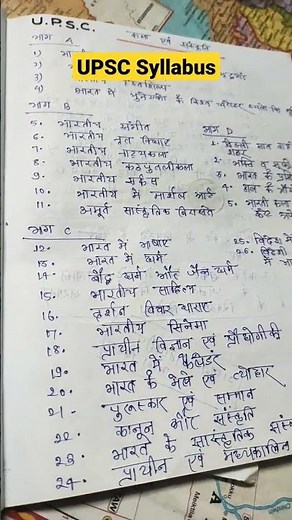 U.P.S.C.
भाग A
कला एवं संस्कृति
UPSC Syllabus
1)
2)
3)
4) भारत में
भाग B
5. भारतीय संगीत
6. भारतीय
7. भारतीय नाट्यकला
8. भारतीय कठपुतलीकला
9. भारतीय सर्कस
10. भारतीय में मार्शल आर्ट
11. अमूर्त सांस्कृतिक
भाग D
1.
2. भक्ति व सू
3. भारत के
4. हाल के
5. भारतीय कला
भाग C
12. भारत में भाषाएं
13. भारत में धर्म
14. बौद्ध धर्म और जैन धर्म
15. भारतीय साहित्य
16. दर्शन विचार धाराएं
17. भारतीय सिनेमा
18. प्राचीन विज्ञान एवं प्रौद्योगिकी
19. भारत में कैलेंडर
20. भारत के मेले एवं त्योहार
21. पुरस्कार एवं सम्मान
22. कानून और संस्कृति
23. भारत के सांस्कृतिक
24. प्राचीन एवं मध्यकालिन
25. विदेशो में
26. विदेशी